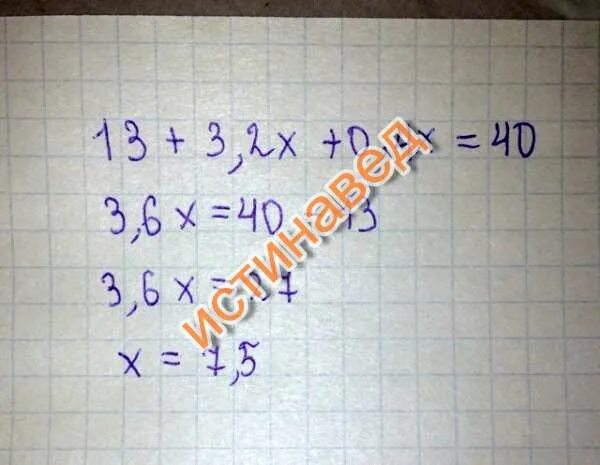 13 + 3,2x + 0,4x = 40
3,6x = 40 - 13
3,6x = 27
x = 7,5
истинавед